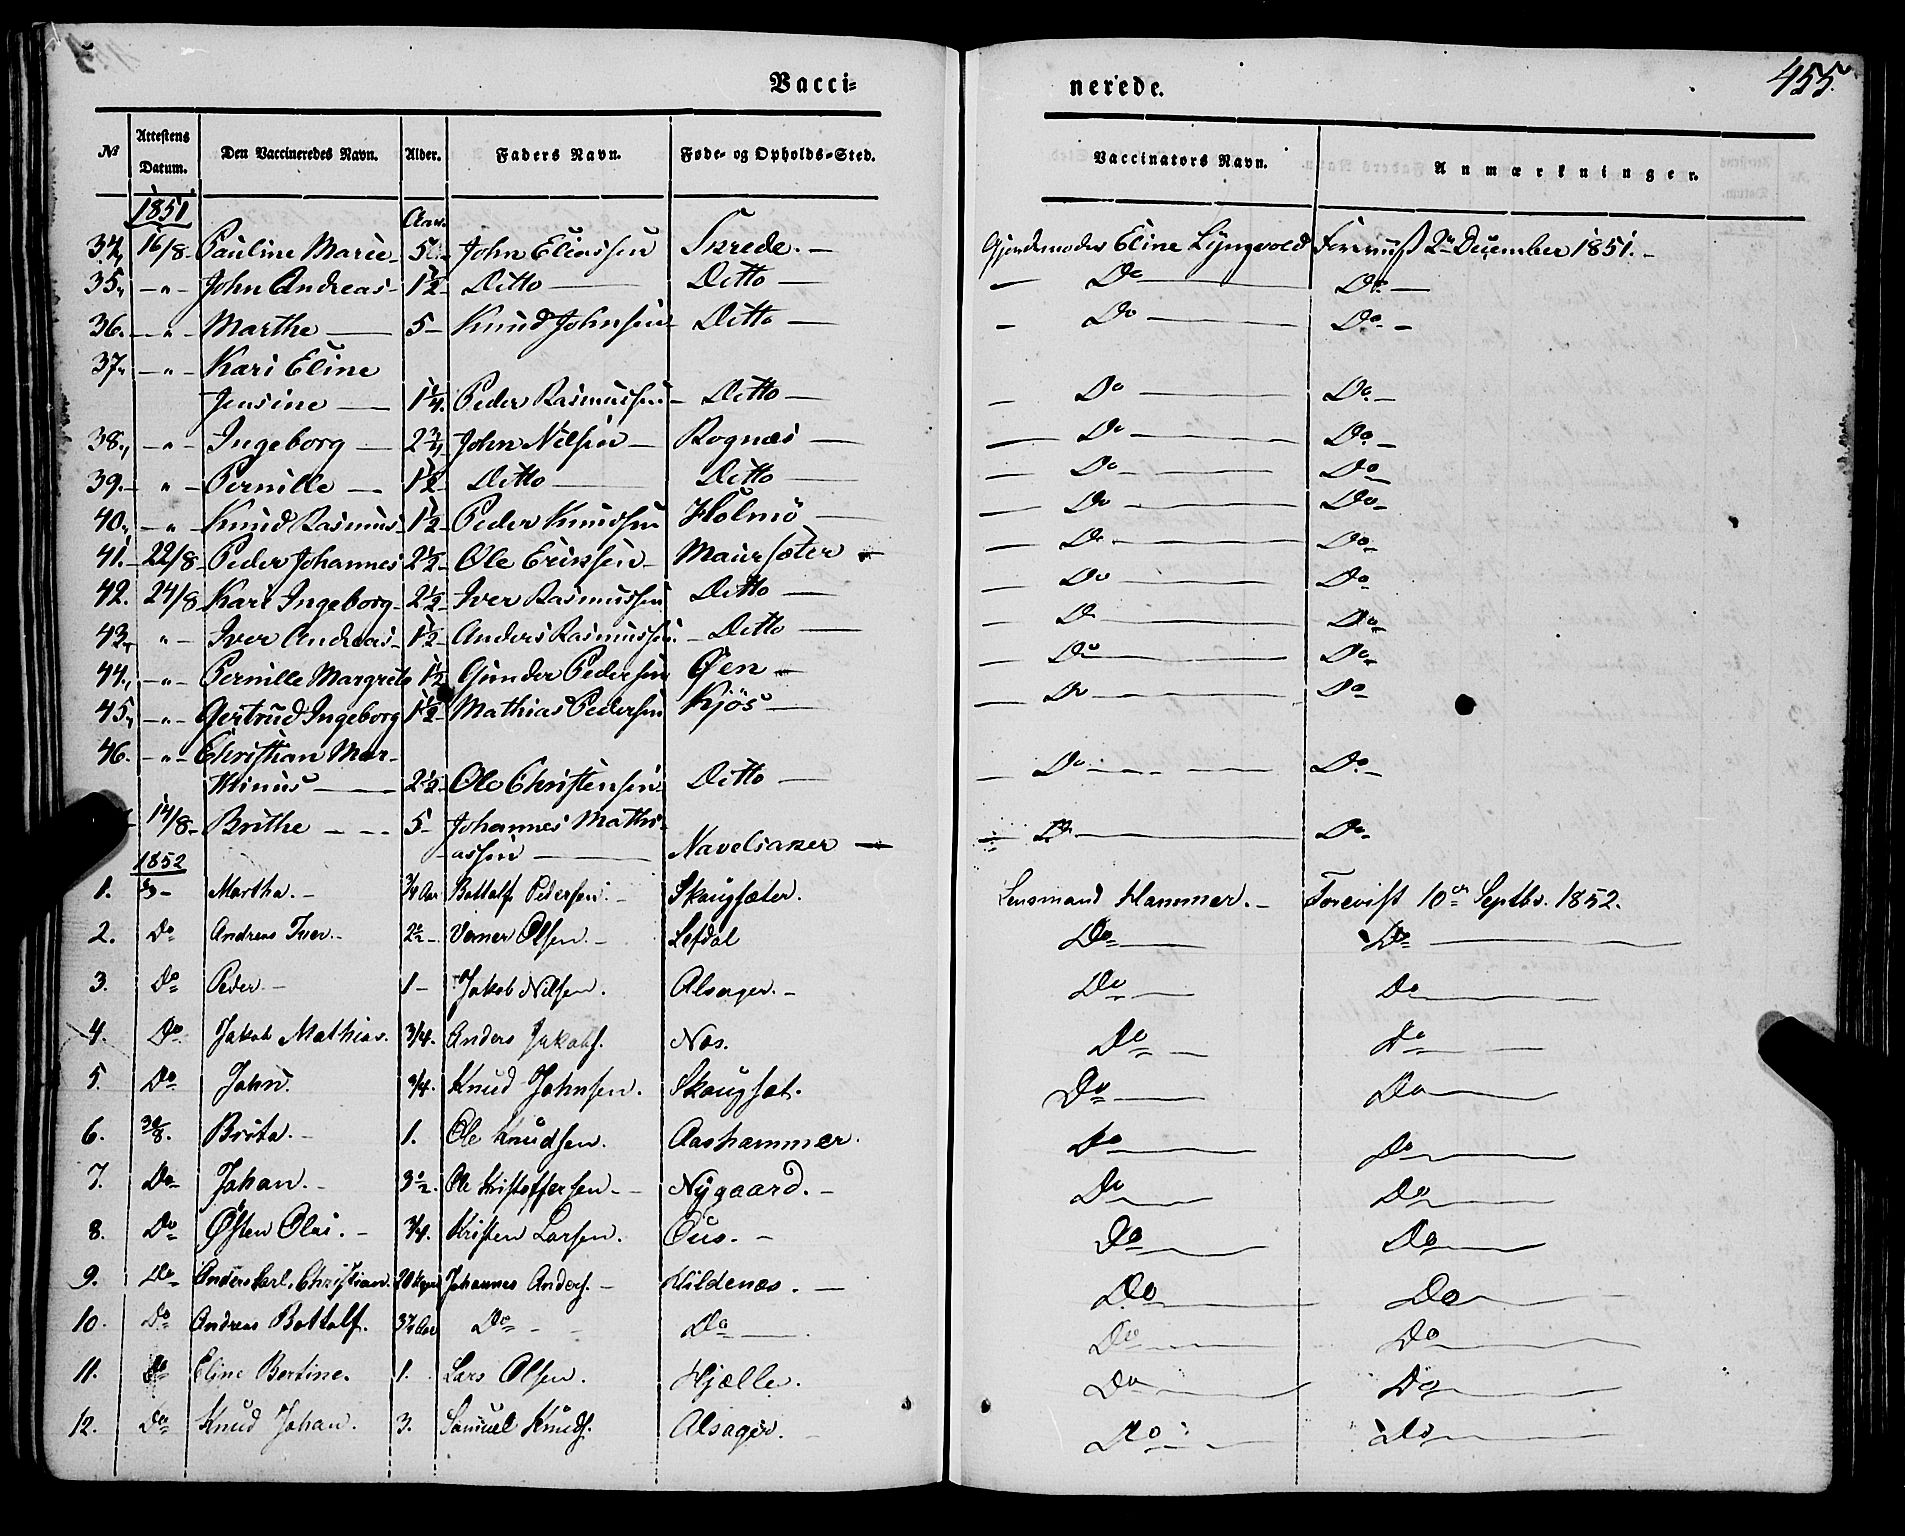 455.
Vacci- nerede.
No Attestens Datum. Den Vaccineredes Navn. Alder. Faders Navn. Føde- og Opholds-Sted. Vaccinators Navn. Anmærkninger.
1851 Aar.
34, 16/8- Pauline Marie- 5 John Eliassen Skrede. - Gjordemoder Eline Lyngvold Foreviist 2 December 1851. -
35, - " - John Andreas- 1½ Ditto - Ditto - - Do - Do -
36. - " - Marthe - 5- Knud Johnsen Ditto - - Do - Do -
37, - " - Kari Eline
Jensine - 1¼. Peder Rasmussen - Ditto - - Do - Do. -
38, - " - Ingeborg - 2¾ John Nilsen - Rognæs - - Do - Do -
39. - " - Pernille - 1½ Ditto - Ditto - - Do - Do -
40, - " - Knud Rasmus- 1½ Peder Knudsen Holmö - - Do - Do -
41. - 22/8- Peder Johannes 2½ Ole Erikssen - Maursæter - - Do - Do -
42. 24/8- Kari Ingeborg- 2½ Iver Rasmussen Ditto - - Do - Do -
43, " - Iver Andreas- 1½ Anders Rasmussen. - Ditto - - Do - Do -
44, - " - Pernille Margrete 1½ Gunder Pedersen Øen - - Do - Do -
45, - " - Gertrud Ingeborg 1½ Mathias Pedersen Kjös - - Do - Do -
46. - " - Christian Mar-
thinus - 2½ Ole Christensen Ditto - - Do - Do -
14/8- Brithe - - 5- Johannes Mathi-
assen - Navelsaker - - Do - Do -
1852
1. Martha. - ¾ Aar Bottolf Pedersen. - Skougsæter. Lensmand Hammer. - Forevist 10 Septbr. 1852.
2. Do Andreas Iver. - 2½ -. Verner Olsen. - Lefdal Do - Do -
3. Do Peder. - 1 - Jakob Nilsen. Alsager. - Do - Do -
4. Do Jakob Mathias. 3/4. Anders Jakobs. Nos. Do - Do -
5. Do John. 3/4. Knud Johnsen. Skougsæt. Do - Do -
6. 30/8. Brita. - 1. Ole Knudsen. Aashammer. Do - Do -
7. Do Johan. - 3½. Ole Kristoffersen. - - Nygaard. - Do - Do -
8. Do Østen Olai. - 3/4. Kristen Larsen. Ous. - Do - Do -
9. Do Anders Carl. Christian. 20 Johannes Anders. - Hildenæs. - Do - Do -
10. Do Andreas Bottolf. 3¾ Aar Do - - Do - Do - Do -
11. Do Eline Bertine. 1. Lars Olsen. Hjælle. Do - Do -
12. Do Knud Johan. 3. Samuel Knuds. Alsager. - Do - Do -